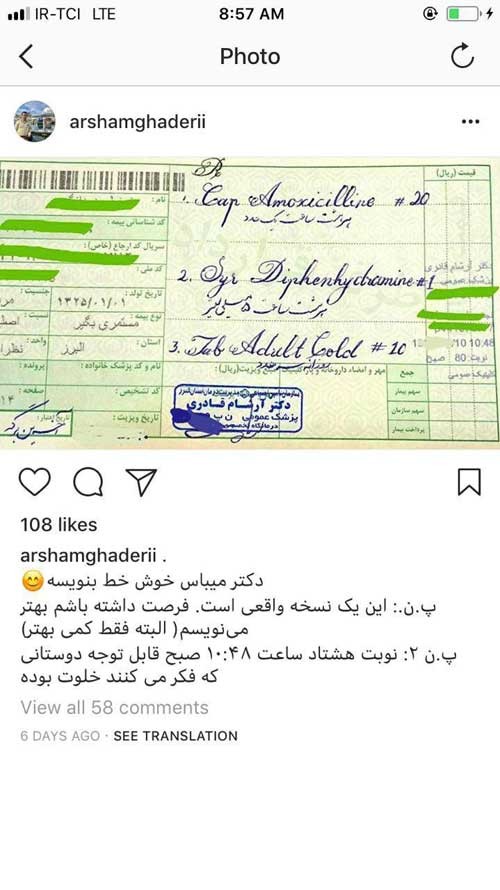 IR-TCI LTE 8:57 AM
Photo
arshamghaderii
قیمت (ریال)
نام :
1. Cap Amoxicilline #20
کد شناسائی بیمه :
سریال کد ارجاع (خاص) :
کد ملی :
2. Syr Diphenhydramine #1
تاریخ تولد : ۱۳۲۵/۰۱/۰۱ جنسیت :
نوع بیمه : مستمری بگیر نسبت :
استان : البرز واحد :
3. Tab Adult Cold #20
10:48
نوبت: 80 صبح
نام و کد پزشک خانواده : پرونده :
مهر و امضاء داروخانه
جمع
کد تشخیص : صفحه :
سهم بیمار
سهم سازمان
پرداخت بیمار
تاریخ ویزیت :
دکتر آرشام قادری
پزشک عمومی
108 likes
arshamghaderii .
دکتر میباس خوش خط بنویسه😊
پ.ن.: این یک نسخه واقعی است. فرصت داشته باشم بهتر
می‌نویسم( البته فقط کمی بهتر)
پ.ن ۲: نوبت هشتاد ساعت ۱۰:۴۸ صبح قابل توجه دوستانی
که فکر می کنند خلوت بوده
View all 58 comments
6 DAYS AGO · SEE TRANSLATION